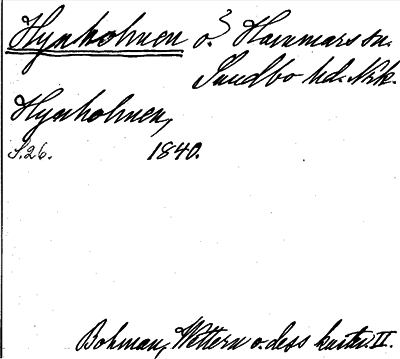 Hynholmen ö. Hammars sn.
Sundbo hd. Nrk.
Hynholmen,
S. 26. 1840.
Bohman, Wettern o. dess kuster. II.